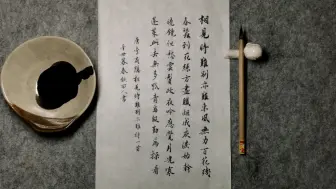 相見時難別亦難東風無力百花殘
春蠶到死絲方盡蠟炬成灰淚始乾
曉鏡但愁雲鬢改夜吟應覺月光寒
蓬萊此去無多路青鳥殷勤為探看
唐李商隱相見時難別亦難詩一首